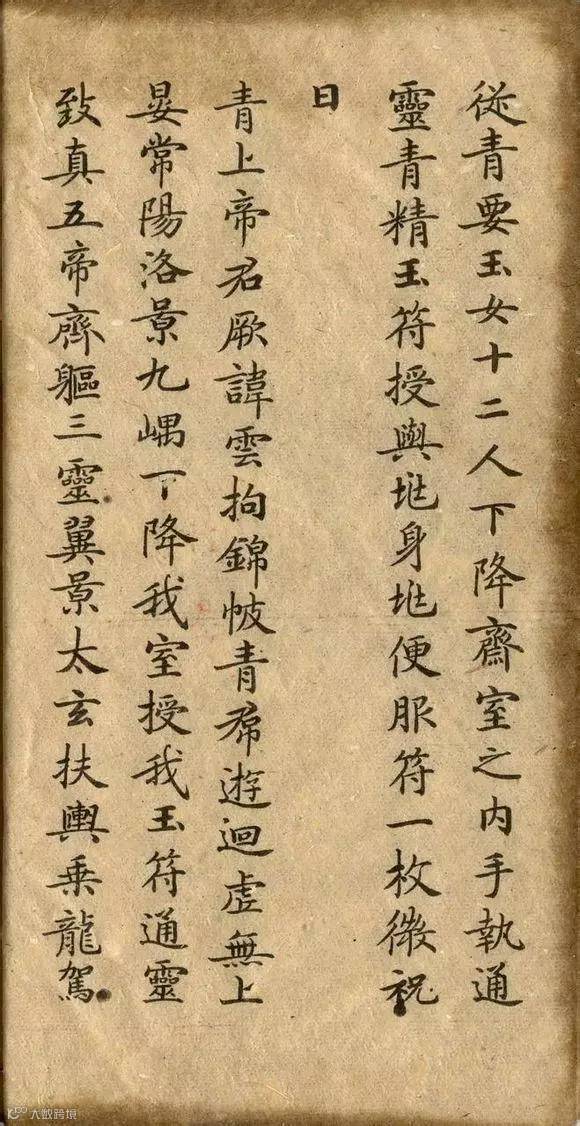 從青要玉女十二人下降齋室之內手執通
靈青精玉符授與兆身兆便服符一枚微祝
曰
青上帝君厥諱雲拘錦帔青帬遊迴虛無上
晏常陽洛景九嵎下降我室授我玉符通靈
致真五帝齊軀三靈翼景太玄扶輿乘龍駕
大数跨境